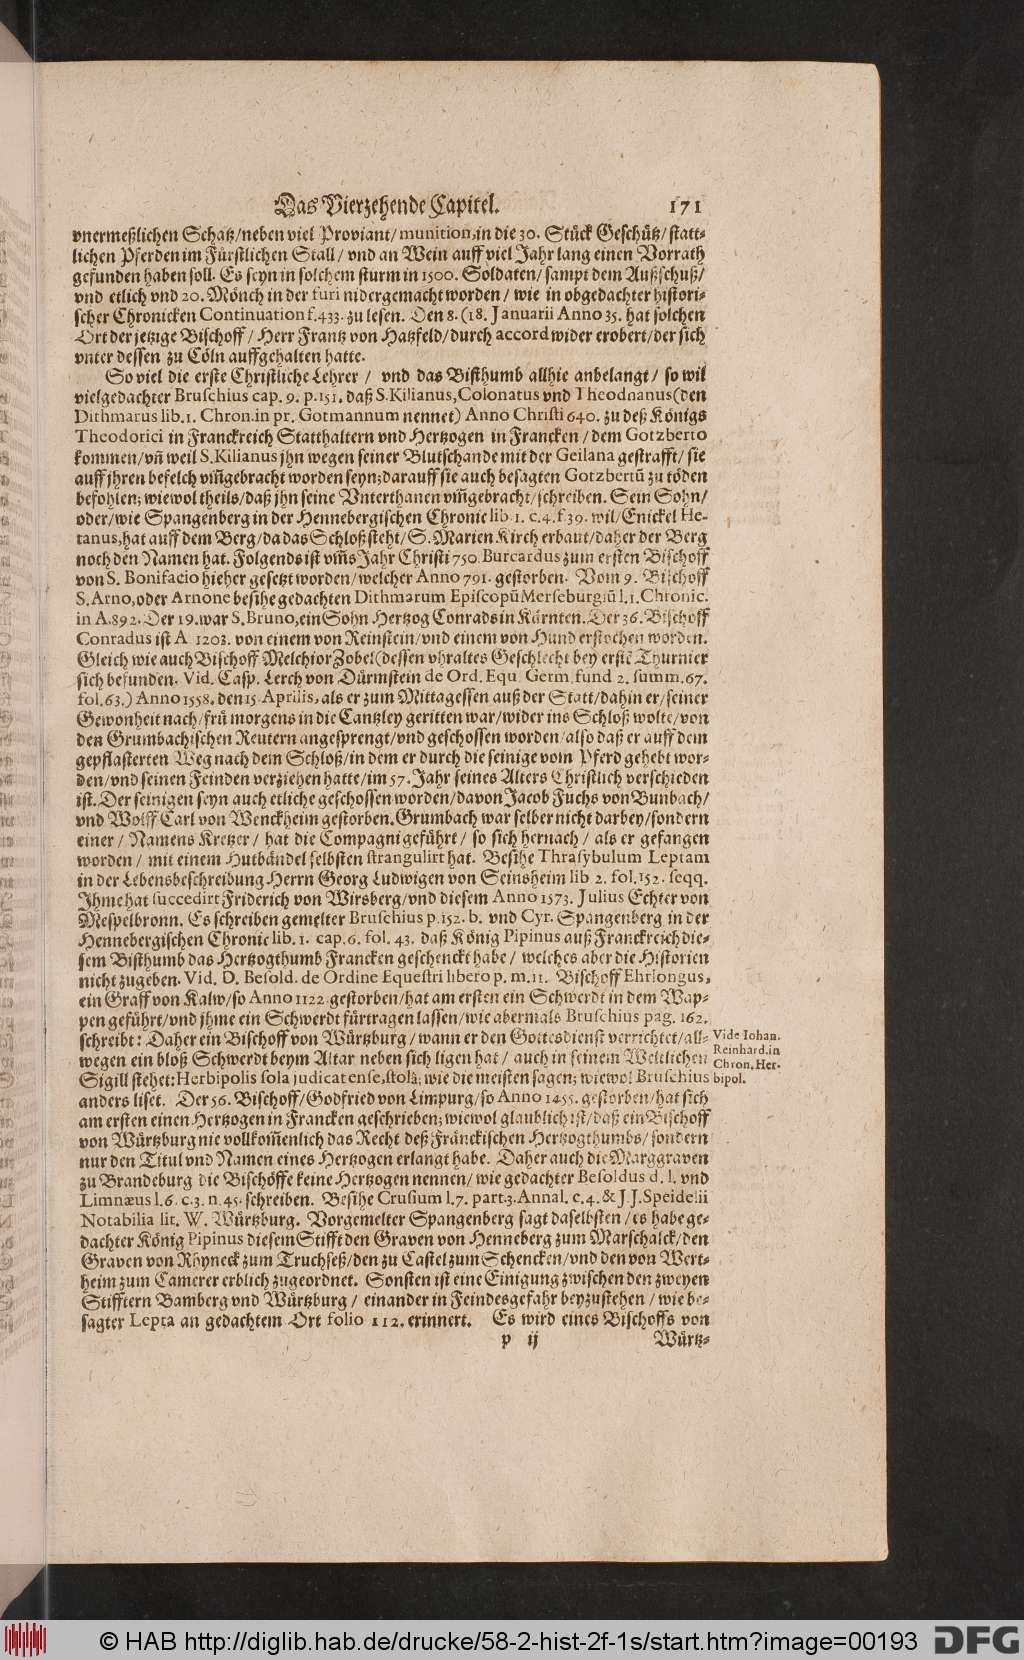 Das Vierzehende Capitel. 171
vnermeßlichen Schatz/neben viel Proviant/munition,in die 30. Stück Geschütz/statt-
lichen Pferden im Fürstlichen Stall/vnd an Wein auff viel Jahr lang einen Vorrath
gefunden haben soll. Es seyn in solchem sturm in 1500. Soldaten/sampt dem Außschuß/
vnd etlich vnd 20. Mönch in der furi nidergemacht worden/wie in obgedachter histori-
scher Chronicken Continuation f.433. zu lesen. Den 8. (18. Januarii Anno 35. hat solchen
Ort der jetzige Bischoff/Herr Frantz von Hatzfeld/durch accord wider erobert/der sich
vnter dessen zu Cöln auffgehalten hatte.
So viel die erste Christliche Lehrer/vnd das Bisthumb allhie anbelangt/so wil
vielgedachter Bruschius cap. 9. p.151. daß S.Kilianus,Colonatus vnd Theodnanus (den
Dithmarus lib.1. Chron.in pr. Gotmannum nennet) Anno Christi 640. zu deß Königs
Theodorici in Franckreich Statthaltern vnd Hertzogen in Francken/dem Gotzberto
kommen/vñ weil S.Kilianus jhn wegen seiner Blutschande mit der Geilana gestrafft/sie
auff jhren befelch vm̃gebracht worden seyn; darauff sie auch besagten Gotzbertũ zu töden
befohlen; wiewol theils/daß jhn seine Vnterthanen vm̃gebracht/schreiben. Sein Sohn/
oder/wie Spangenberg in der Hennebergischen Chronic lib. 1. c.4.f.39. wil/Enickel He-
tanus,hat auff dem Berg/da das Schloß steht/S. Marien Kirch erbaut/daher der Berg
noch den Namen hat. Folgends ist vm̃s Jahr Christi 750. Burcardus zum ersten Bischoff
von S. Bonifacio hieher gesetzt worden/welcher Anno 791. gestorben. Vom 9. Bischoff
S.Arno,oder Arnone besihe gedachten Dithmarum Episcopũ Merseburgiũ l.1.Chronic.
in A.892. Der 19. war S.Bruno,ein Sohn Hertzog Conrads in Kärnten. Der 36. Bischoff
Conradus ist A 1203. von einem von Reinstein/vnd einem von Hund erstochen worden.
Gleich wie auch Bischoff Melchior Zobel (dessen vhraltes Geschlecht bey erstẽ Thurnier
sich befunden. Vid. Casp. Lerch von Dürmstein de Ord. Equ. Germ. fund 2. summ. 67.
fol.63.) Anno 1558. den 15. Aprilis, als er zum Mittagessen auß der Statt/dahin er/seiner
Gewonheit nach/frü morgens in die Cantzley geritten war/wider ins Schloß wolte/von
den Grumbachischen Reutern angesprengt/vnd geschossen worden/also daß er auff dem
gepflasterten Weg nach dem Schloß/in dem er durch die seinige vom Pferd gehebt wor-
den/vnd seinen Feinden verziehen hatte/im 57. Jahr seines Alters Christlich verschieden
ist. Der seinigen seyn auch etliche geschossen worden/davon Jacob Fuchs von Bunbach/
vnd Wolff Carl von Wenckheim gestorben. Grumbach war selber nicht darbey/sondern
einer/Namens Kretzer/hat die Compagni geführt/so sich hernach/als er gefangen
worden/mit einem Hutbändel selbsten strangulirt hat. Besihe Thrasybulum Leptam
in der Lebensbeschreibung Herrn Georg Ludwigen von Seinsheim lib. 2. fol.152. seqq.
Ihme hat succedirt Friderich von Wirsberg/vnd diesem Anno 1573. Julius Echter von
Mespelbronn. Es schreiben gemelter Bruschius p.152. b. vnd Cyr. Spangenberg in der
Hennebergischen Chronic lib. 1. cap.6. fol. 43. daß König Pipinus auß Franckreich die-
sem Bisthumb das Hertzogthumb Francken geschenckt habe/welches aber die Historien
nicht zugeben. Vid. D. Besold. de Ordine Equestri libero p. m.11. Bischoff Ehrlongus,
ein Graff von Kalw/so Anno 1122. gestorben/hat am ersten ein Schwerdt in dem Wap-
pen geführt/vnd jhme ein Schwerdt fürtragen lassen/wie abermals Bruschius pag. 162.
schreibt: Daher ein Bischoff von Würtzburg/wann er den Gottesdienst verrichtet/all-
wegen ein bloß Schwerdt beym Altar neben sich ligen hat/auch in seinem Weltlichen
Sigill stehet: Herbipolis sola judicat ense, stolâ; wie die meisten sagen; wiewol Bruschius
anders liset. Der 56. Bischoff/Godfried von Limpurg/so Anno 1455. gestorben/hat sich
am ersten einen Hertzogen in Francken geschrieben; wiewol glaublich ist/daß ein Bischoff
von Würtzburg nie vollkom̃enlich das Recht deß Fränckischen Hertzogthumbs/sondern
nur den Titul vnd Namen eines Hertzogen erlangt habe. Daher auch die Marggraven
zu Brandeburg die Bischöffe keine Hertzogen nennen/wie gedachter Besoldus d. l. vnd
Limnæus l.6. c.3. n. 45. schreiben. Besihe Crusium l.7. part.3. Annal. c.4. & J.J. Speidelii
Notabilia lit. W. Würtzburg. Vorgemelter Spangenberg sagt daselbsten/es habe ge-
dachter König Pipinus diesem Stifft den Graven von Henneberg zum Marschalck/den
Graven von Rhyneck zum Truchseß/den zu Castel zum Schencken/vnd den von Wert-
heim zum Camerer erblich zugeordnet. Sonsten ist eine Einigung zwischen den zweyen
Stifftern Bamberg vnd Würtzburg/einander in Feindesgefahr beyzustehen/wie be-
sagter Lepta an gedachtem Ort folio 112. erinnert. Es wird eines Bischoffs von
p ij Würtz-
Vide Iohan.
Reinhard.in
Chron. Her-
bipol.
© HAB http://diglib.hab.de/drucke/58-2-hist-2f-1s/start.htm?image=00193 DFG